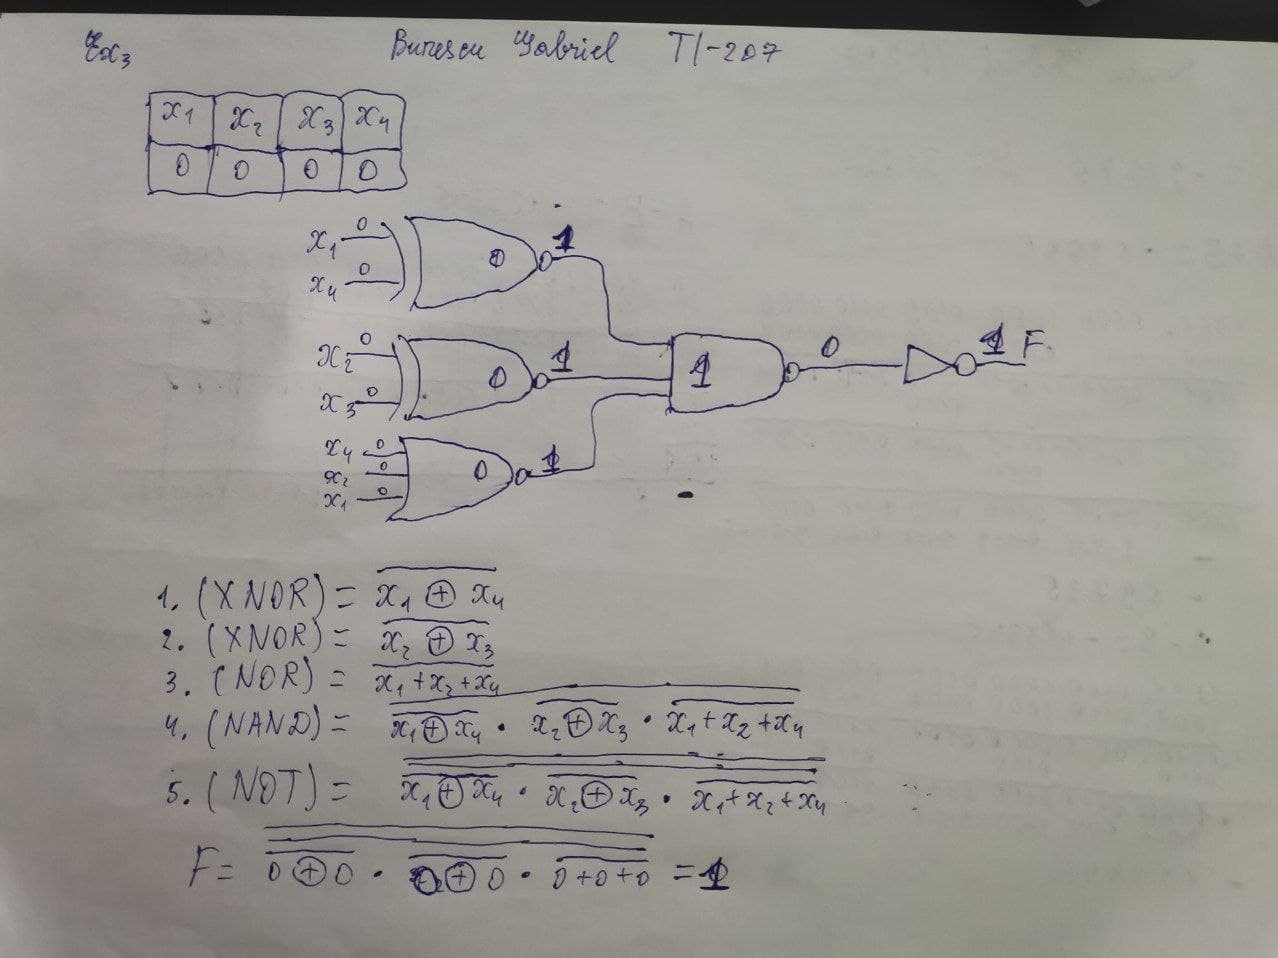 Ex₃ Bunescu Gabriel TI-207
x₁ x₂ x₃ x₄
0 0 0 0
x₁ 0
x₄ 0
0 1
x₂ 0
x₃ 0
0 1
x₄ 0
x₂ 0
x₁ 0
0 1
1 0 1 F
1. (XNOR) = \overline{x₁ ⊕ x₄}
2. (XNOR) = \overline{x₂ ⊕ x₃}
3. (NOR) = \overline{x₁+x₂+x₄}
4. (NAND) = \overline{\overline{x₁⊕x₄} · \overline{x₂⊕x₃} · \overline{x₁+x₂+x₄}}
5. (NOT) = \overline{\overline{\overline{x₁⊕x₄} · \overline{x₂⊕x₃} · \overline{x₁+x₂+x₄}}}
F = \overline{\overline{\overline{0⊕0} · \overline{0⊕0} · \overline{0+0+0}}} = 1